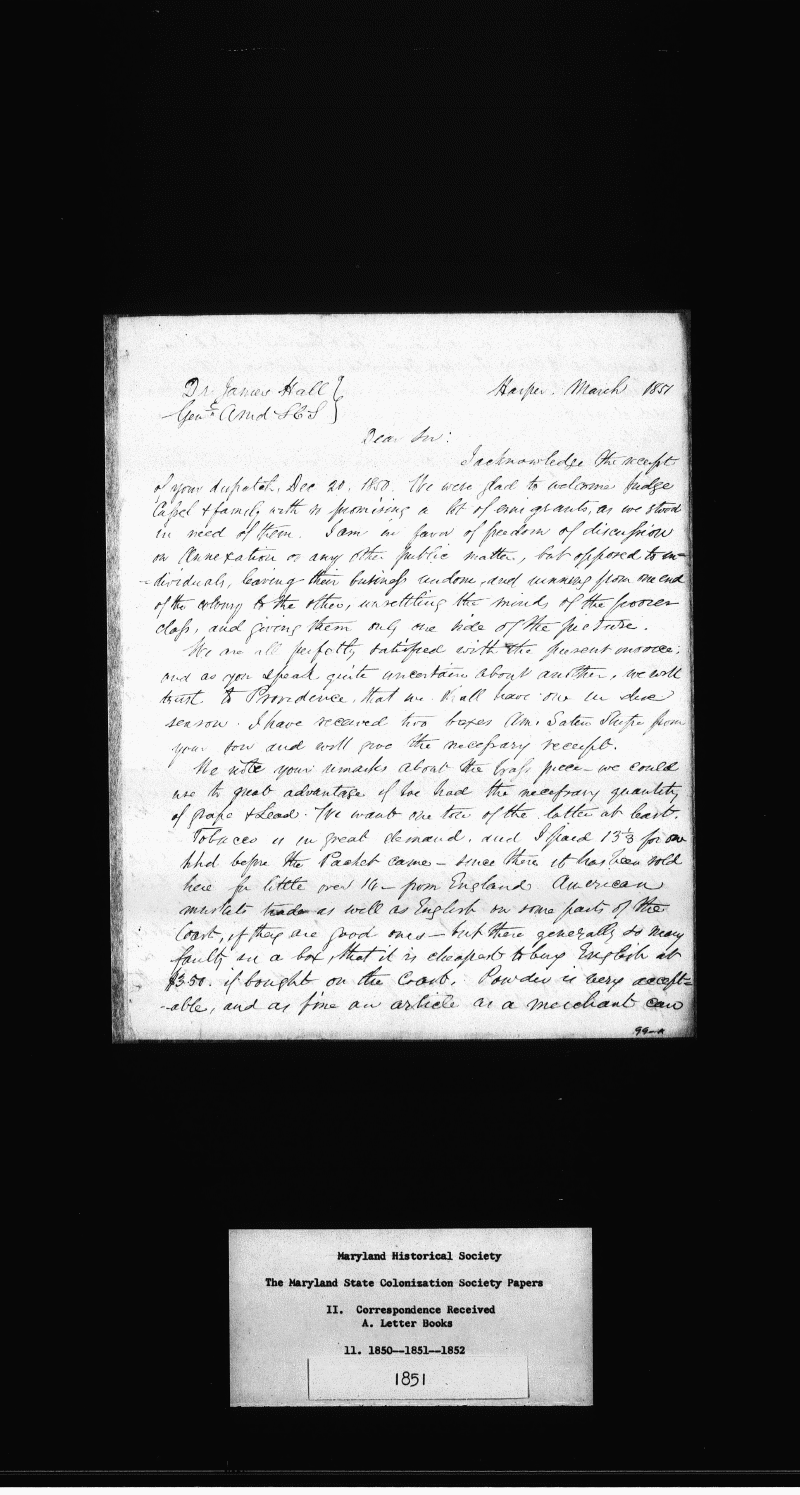 Dr. James Hall }
Harper. March 1851
Genl Agnt S C S }
Dear Sir:
I acknowledge the receipt
of your dispatch, Dec 20. 1850. We were glad to welcome Judge
Cassel & family with so promising a lot of emigrants, as we stood
in need of them. I am in favor of freedom of discussion
on Annexation or any other public matter, but opposed to in-
-dividuals, leaving their business undone, and running from one end
of the colony to the other, unsettling the minds of the poorer
class, and giving them only one side of the picture.
We are all perfectly satisfied with the present
and as you speak quite uncertain about another, we will
trust to Providence, that we shall have one in due
season. I have received two boxes Am. Saten Stripe from
your son and will give the necessary receipt.
We note your remarks about the brass piece - we could
use to great advantage if we had the necessary quantity
of grape & Lead. We want one ton of the latter at least.
Tobacco is in great demand. and I paid 13 1/3 for one
hhd before the Packet came - since then it has been sold
here for little over 16 - from England American
muskets trade as well as English on some parts of the
Coast, if they are good ones - but there generally so many
faulty in a box, that it is cheaper to buy English at
$3.50. if bought on the Coast. Powder is very accept=
-able, and as fine an article as a merchant can
99-A
Maryland Historical Society
The Maryland State Colonization Society Papers
II. Correspondence Received
A. Letter Books
11. 1850--1851--1852
1851